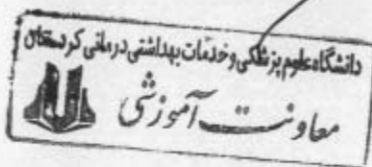 دانشگاه علوم پزشکی و خدمات بهداشتی درمانی کردستان
معاونت آموزشی